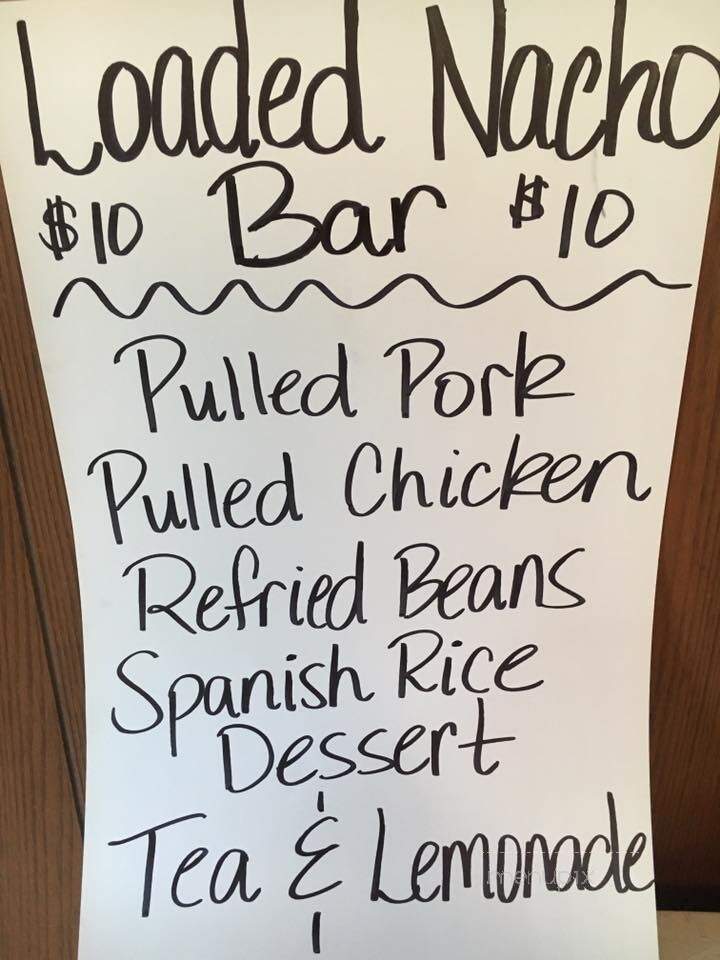 Loaded Nacho
$10 Bar $10
Pulled Pork
Pulled Chicken
Refried Beans
Spanish Rice
Dessert
Tea & Lemonade
menupix